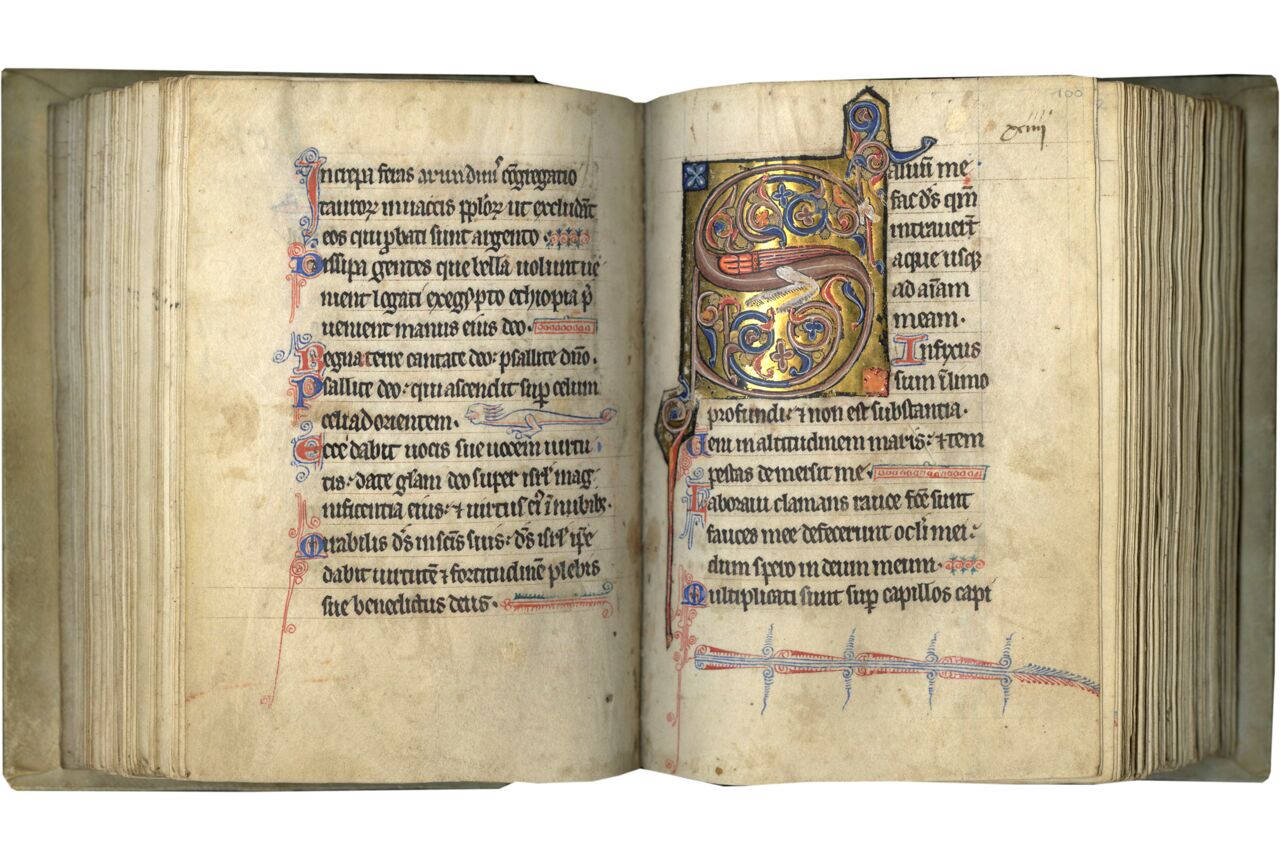 Increpa feras arundinũ ꝯ̃gregatio
tauroꝝ in uaccis pploꝝ ut excludãt
eos qui ꝓbati sunt argento.
Dissipa gentes que bella uolunt ue
nient legati ex egypto ethiopia p̄
uenient manus eius deo.
Regna terre cantate deo: psallite dño.
Psallite deo: qui ascendit suꝑ celum
celi ad orientem.
Ecce dabit uocis sue uocem uirtu
tis: date gl̃am deo super isrl̃ mag
nificentia eius: ⁊ uirtus eiꝰ ĩ nubibꝫ.
Mirabilis d̃s in sc̃is suis: d̃s isrl̃ ip̃e
dabit uirtutẽ ⁊ fortitudinẽ plebis
sue benedictus deus.
100
xiiii
Saluũ me
fac d̃s qm̃
intrauer̃t
aque usqꝫ
ad aĩam
meam.
Infixus
sum ĩ limo
profundi: ⁊ non est substantia.
Ueni in altitudinem maris: ⁊ tem
pestas demersit me.
Laboraui clamans rauce fc̃e sunt
fauces mee defecerunt oc̃li mei:
dum spero in deum meum.
Multiplicati sunt suꝑ capillos capi